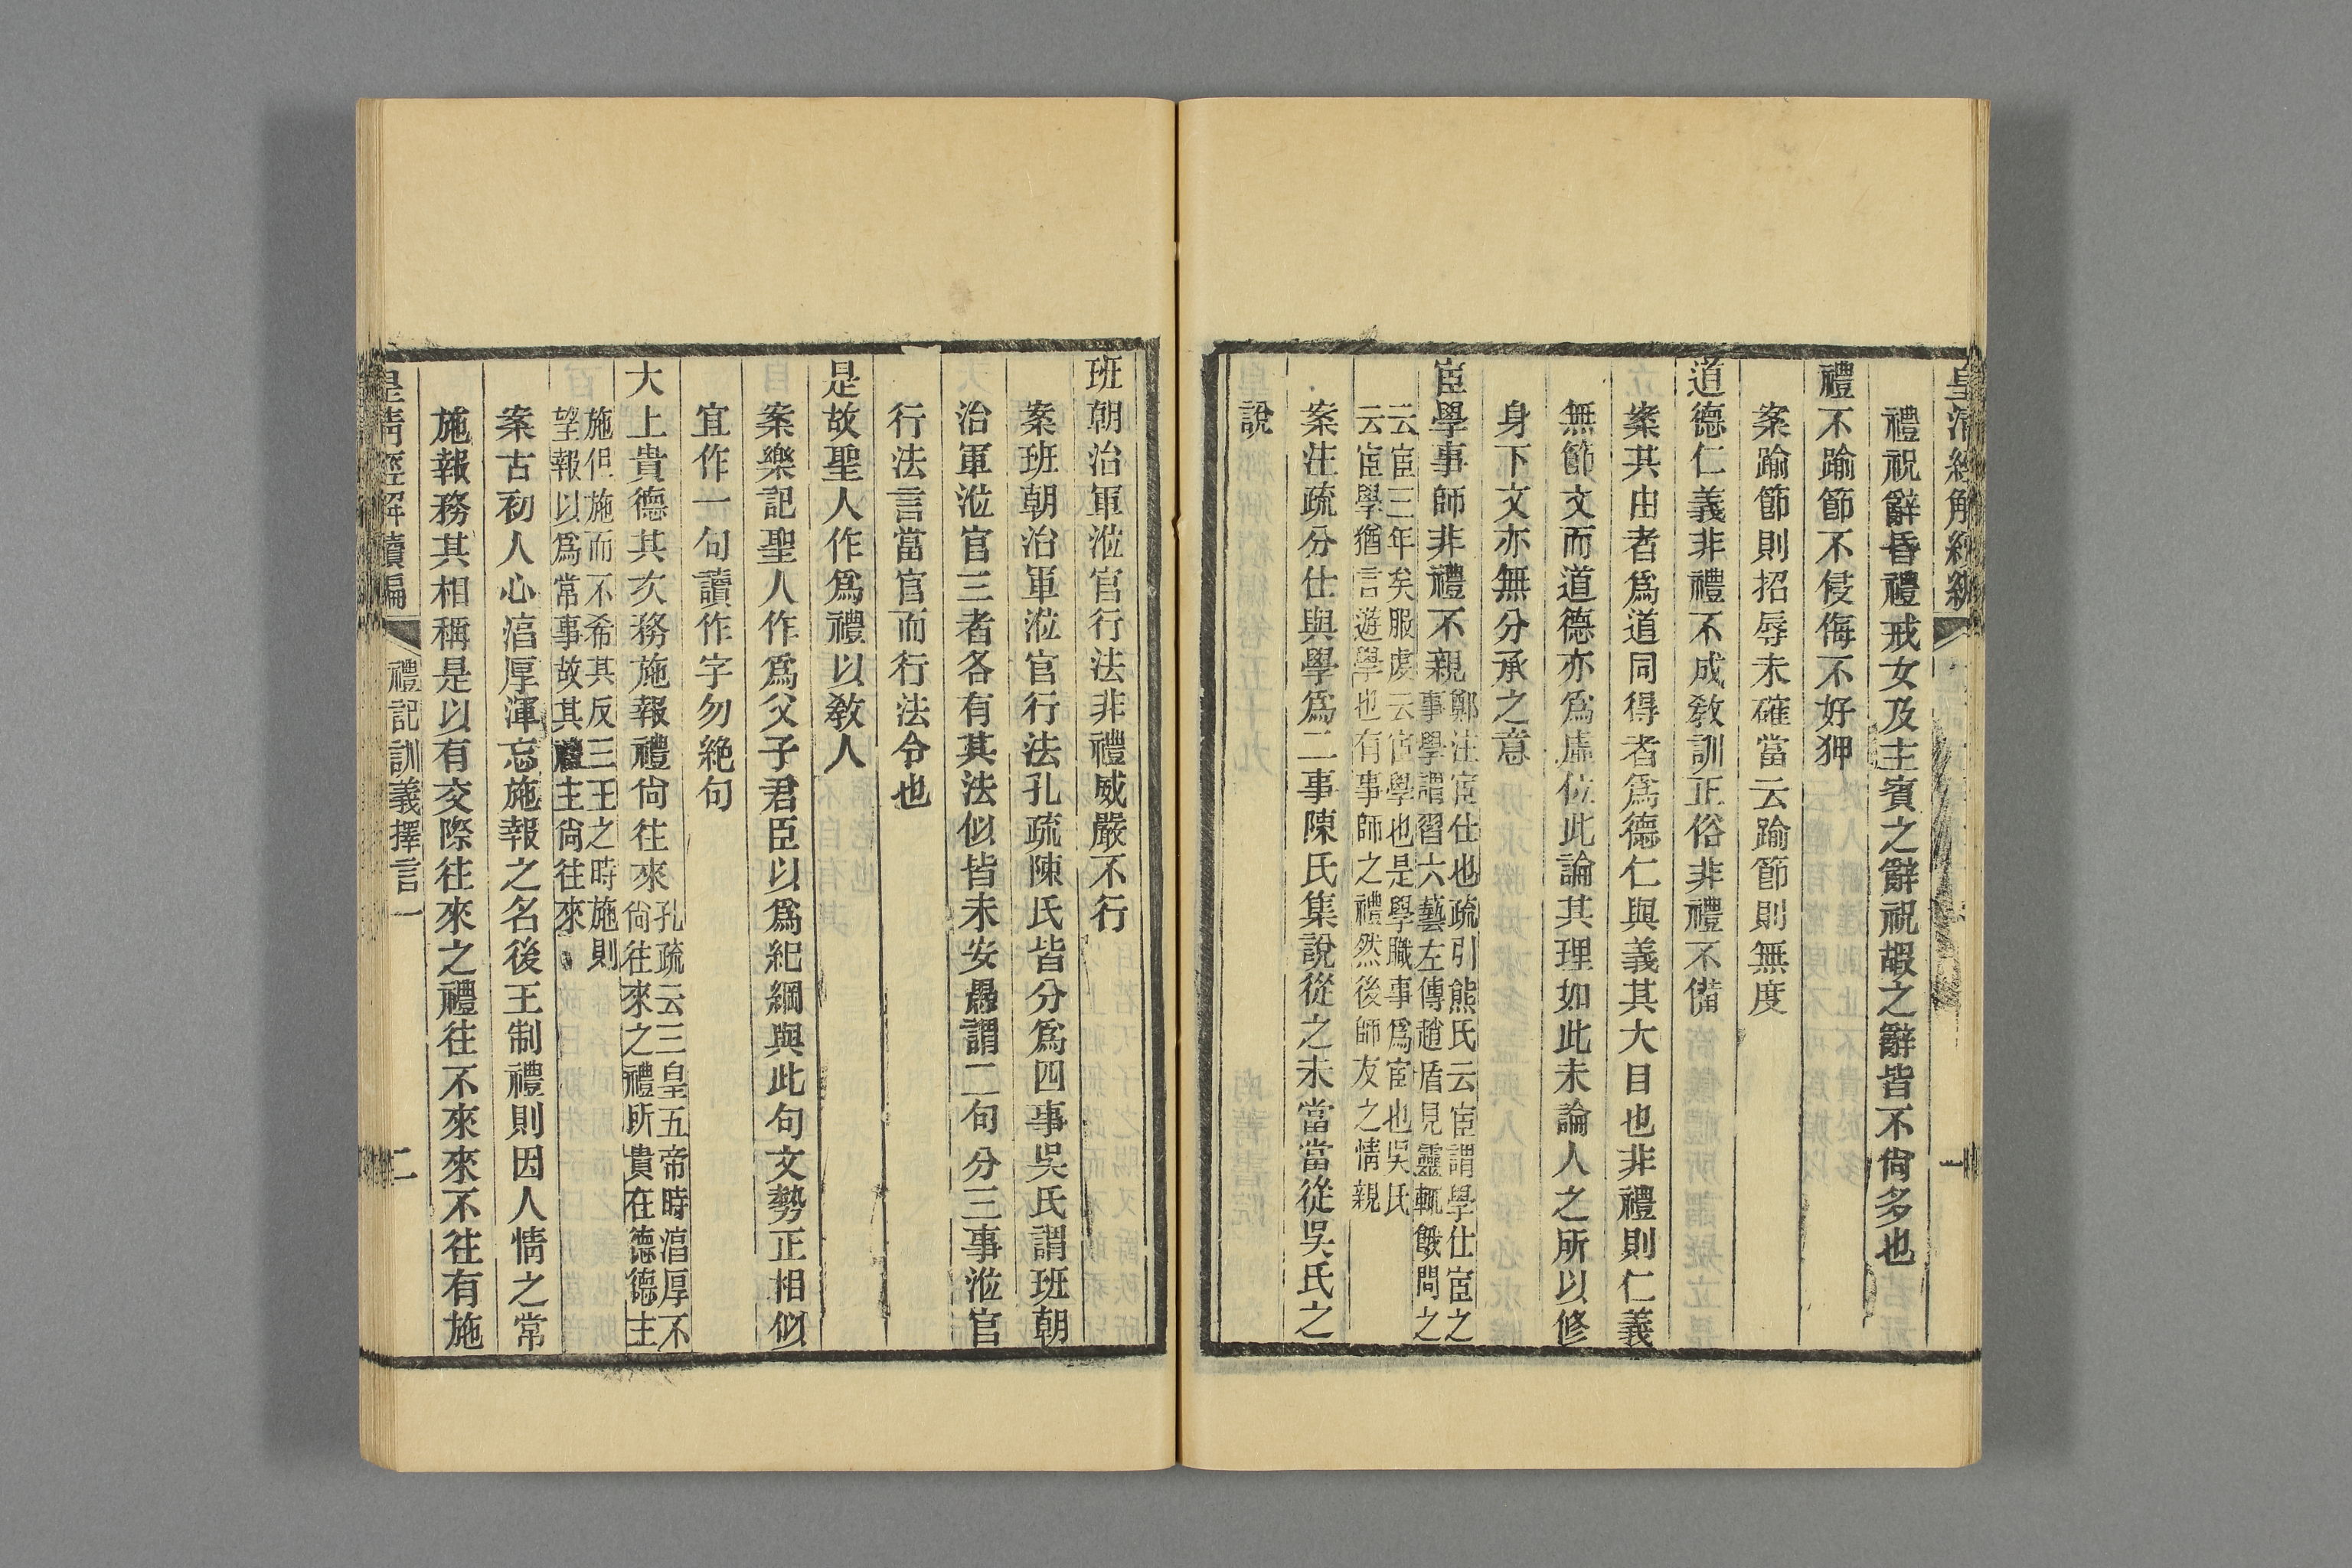 皇清經解續編
一
禮祝辭昏禮戒女及主賓之辭祝嘏之辭皆不尙多也
禮不踰節不侵侮不好狎
案踰節則招辱未確當云踰節則無度
道德仁義非禮不成敎訓正俗非禮不備
案其由者爲道同得者爲德仁與義其大目也非禮則仁義
無節文而道德亦爲虛位此論其理如此未論人之所以修
身下文亦無分承之意
宦學事師非禮不親鄭注宦仕也疏引熊氏云宦謂學仕宦之
事學謂習六藝左傳趙盾見靈輒餓問之
云宦三年矣服虔云宦學也是學職事爲宦也吳氏
云宦學猶言遊學也有事師之禮然後師友之情親
案注疏分仕與學爲二事陳氏集說從之未當當從吳氏之
說
班朝治軍涖官行法非禮威嚴不行
案班朝治軍涖官行法孔疏陳氏皆分爲四事吳氏謂班朝
治軍涖官三者各有其法似皆未安愚謂二句分三事涖官
行法言當官而行法令也
是故聖人作爲禮以敎人
案樂記聖人作爲父子君臣以爲紀綱與此句文勢正相似
宜作一句讀作字勿絶句
大上貴德其次務施報禮尙往來孔疏云三皇五帝時湻厚不
尙往來之禮所貴在德德主
施但施而不希其反三王之時施則
望報以爲常事故其禮主尙往來
案古初人心湻厚渾忘施報之名後王制禮則因人情之常
施報務其相稱是以有交際往來之禮往不來來不往有施
皇清經解續編
禮記訓義擇言一
二